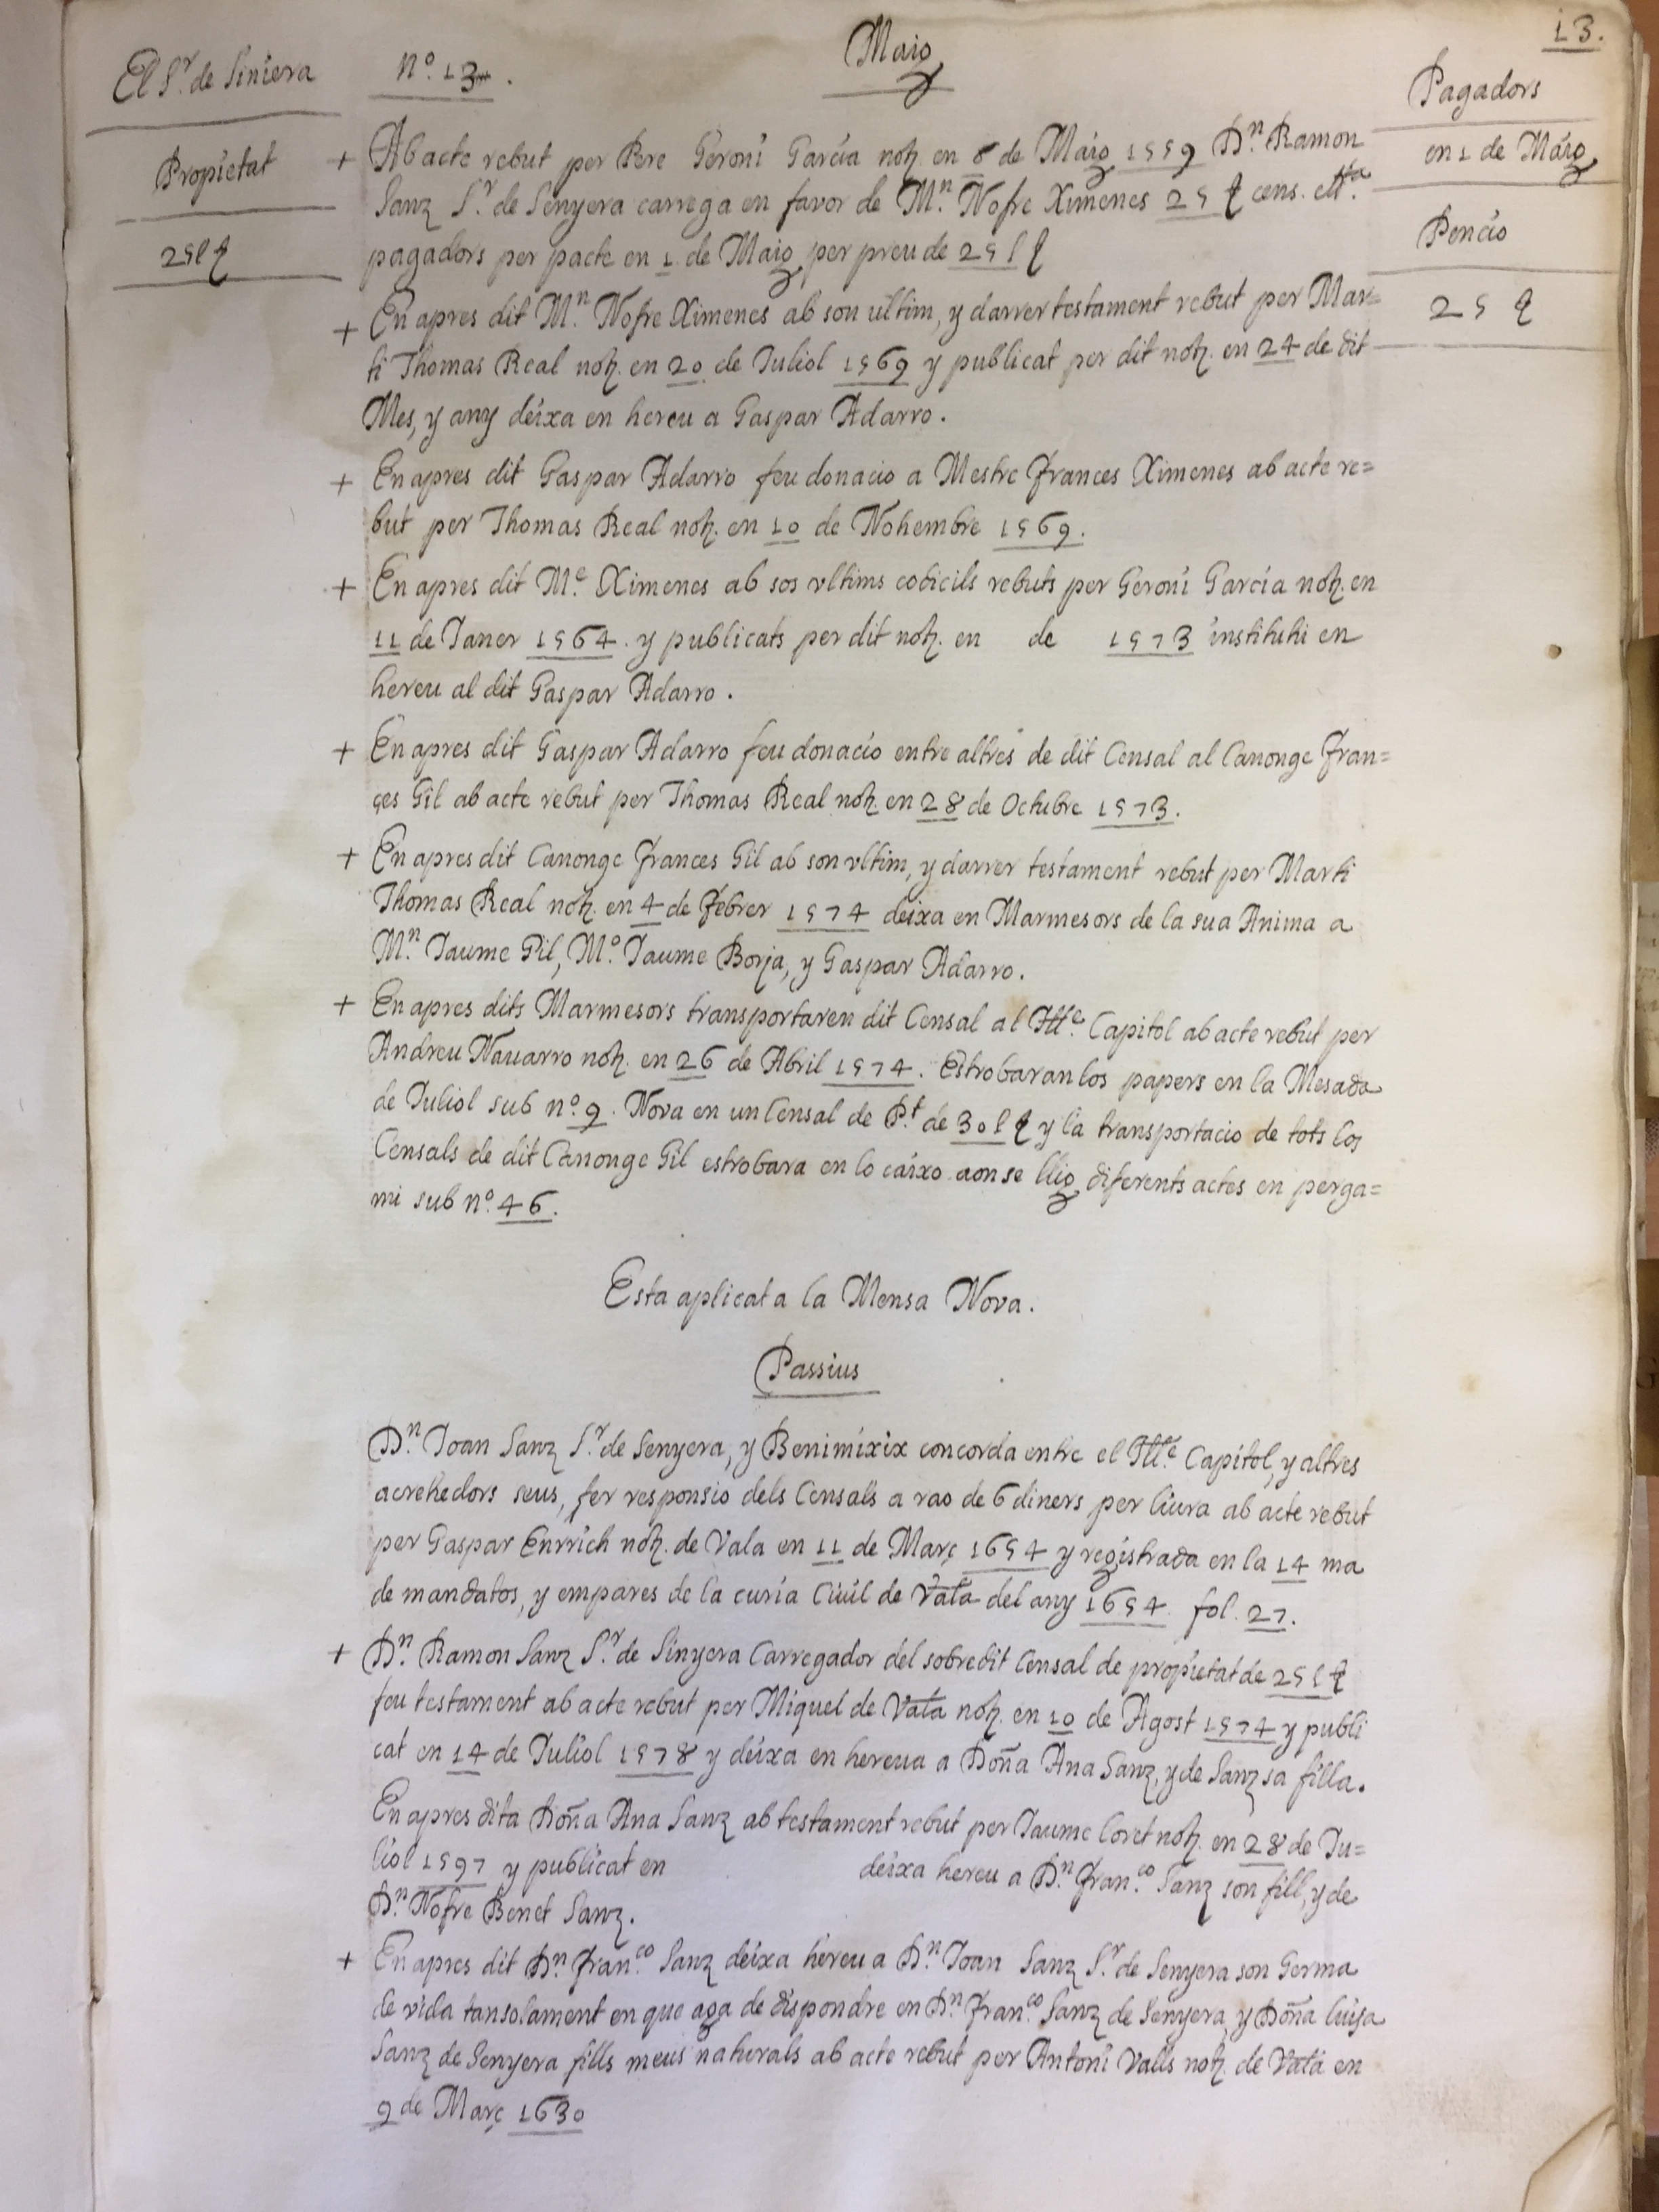 13.
Maig
El Sr. de Siniera
nº. 13.
Pagadors
en 1 de Maig
Propietat
Pencio
25l ₶
25 ₶
+ Ab acte rebut per Pere Geroni Garcia noṭ. en 8 de Maig 1559 Dn. Ramon
Sanz Sr. de Senyera carrega en favor de Mn. Nofre Ximenes 25 ₶ cens. etta.
pagadors per pacte en 1 de Maig per preu de 25l ₶
+ En apres dit Mn. Nofre Ximenes ab son ultim, y darrer testament rebut per Mar=
ti Thomas Real noṭ. en 20 de Juliol 1569 y publicat per dit noṭ. en 24 de dit
Mes, y any deixa en hereu a Gaspar Adarro.
+ En apres dit Gaspar Adarro feu donacio a Mestre Frances Ximenes ab acte re=
but per Thomas Real noṭ. en 10 de Nohembre 1569.
+ En apres dit Me. Ximenes ab sos vltims codicils rebuts per Geroni Garcia noṭ. en
11 de Janer 1564. y publicats per dit noṭ. en de 1573 instituhi en
hereu al dit Gaspar Adarro.
+ En apres dit Gaspar Adarro feu donacio entre altres de dit Censal al Canonge Fran=
çes Gil ab acte rebut per Thomas Real noṭ. en 28 de Octubre 1573.
+ En apres dit Canonge Frances Gil ab son vltim, y darrer testament rebut per Marti
Thomas Real noṭ. en 4 de Febrer 1574 deixa en Marmesors de la sua Anima a
Mn. Jaume Gil, Mo. Jaume Borja, y Gaspar Adarro.
+ En apres dits Marmesors transportaren dit Censal al Ille. Capitol ab acte rebut per
Andreu Nauarro noṭ. en 26 de Abril 1574. Estrobaran los papers en la Mesada
de Juliol sub nº. 9. Nova en un Censal de Pt. de 30l ₶ y la transportacio de tots los
Censals de dit Canonge Gil estrobara en lo caixo aon se llig diferents actes en perga=
mi sub nº. 46.
Esta aplicat a la Mensa Nova.
Passius
Dn. Joan Sanz Sr. de Senyera, y Benimixix concorda entre el Ille. Capitol, y altres
acrehedors seus, fer responsio dels Censals a rao de 6 diners per liura ab acte rebut
per Gaspar Enrrich noṭ. de Vala en 11 de Març 1654 y registrada en la 14 ma
de mandatos, y empares de la curia Ciuil de Vata del any 1654. fol. 27.
+ Dn. Ramon Sanz Sr. de Sinyera Carregador del sobredit Censal de propietat de 25l ₶
feu testament ab acte rebut per Miquel de Vata noṭ. en 10 de Agost 1574 y publi
cat en 14 de Juliol 1578 y deixa en hereua a Doña Ana Sanz, y de Sanz sa filla.
En apres dita Doña Ana Sanz ab testament rebut per Jaume Loret noṭ. en 28 de Ju=
liol 1597 y publicat en deixa hereu a Dn. Franco. Sanz son fill, y de
Dn. Nofre Benet Sanz.
+ En apres dit Dn. Franco. Sanz deixa hereu a Dn. Joan Sanz Sr. de Senyera son Germa
de vida tansolament en que aga de dispondre en Dn. Franco. Sanz de Senyera, y Doña Luisa
Sanz de Senyera fills meus naturals ab acte rebut per Antoni Valls noṭ. de Vata en
9 de Març 1630